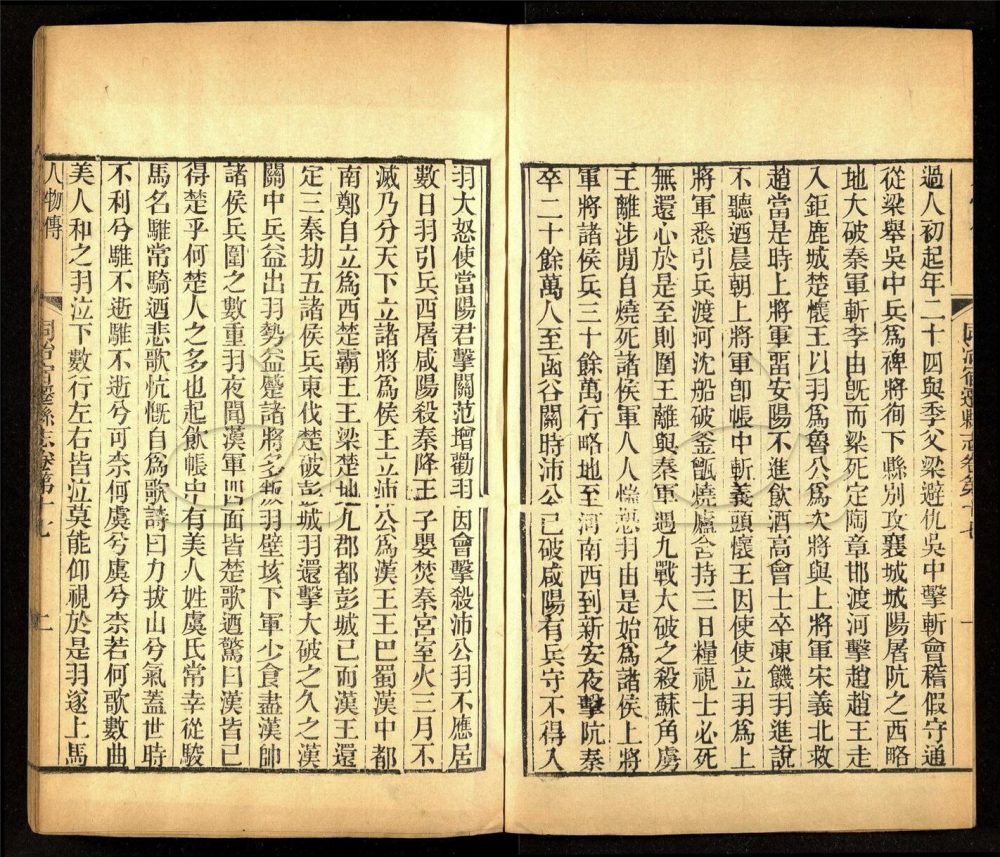 過人初起年二十四與季父梁避仇吳中擊斬會稽假守通
從梁舉吳中兵爲裨將徇下縣別攻襄城城陽屠阬之西略
地大破秦軍斬李由旣而梁死定陶章邯渡河擊趙趙王走
入鉅鹿城楚懷王以羽爲魯公爲次將與上將軍宋義北救
趙當是時上將軍畱安陽不進飮酒高會士卒凍饑羽進說
不聽迺晨朝上將軍卽帳中斬義頭懷王因使使立羽爲上
將軍悉引兵渡河沈船破釜甑燒廬舍持三日糧視士必死
無還心於是至則圍王離與秦軍遇九戰大破之殺蘇角虜
王離涉閒自燒死諸侯軍人人惴恐羽由是始爲諸侯上將
軍將諸侯兵三十餘萬行略地至河南西到新安夜擊阬秦
卒二十餘萬人至函谷關時沛公已破咸陽有兵守不得入
羽大怒使當陽君擊關范增勸羽因會擊殺沛公羽不應居
數日羽引兵西屠咸陽殺秦降王子嬰焚秦宮室火三月不
滅乃分天下立諸將爲侯王立沛公爲漢王王巴蜀漢中都
南鄭自立爲西楚霸王王梁楚地九郡都彭城已而漢王還
定三秦劫五諸侯兵東伐楚破彭城羽還擊大破之久之漢
關中兵益出羽勢益蹙諸將多叛羽壁垓下軍少食盡漢帥
諸侯兵圍之數重羽夜聞漢軍四面皆楚歌迺驚曰漢皆已
得楚乎何楚人之多也起飮帳中有美人姓虞氏常幸從駿
馬名騅常騎迺悲歌忼慨自爲歌詩曰力拔山兮氣蓋世時
不利兮騅不逝騅不逝兮可柰何虞兮虞兮柰若何歌數曲
美人和之羽泣下數行左右皆泣莫能仰視於是羽遂上馬
人物傳 同治宿遷縣志卷第十七 二